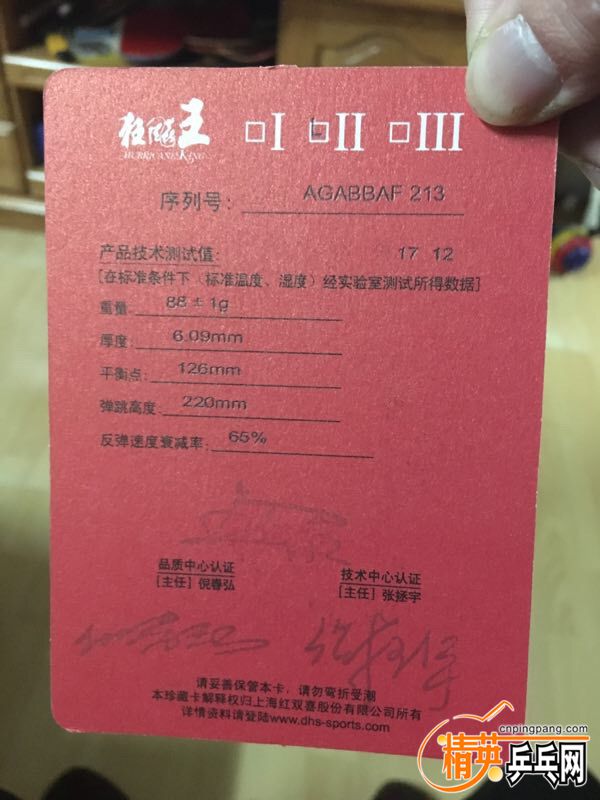 狂飚王
HURRICANE KING
□I □II □III
序列号： AGABBAF 213
产品技术测试值： 17 12
[在标准条件下（标准温度、湿度）经实验室测试所得数据]
重量： 88 ± 1g
厚度： 6.09mm
平衡点： 126mm
弹跳高度： 220mm
反弹速度衰减率： 65%
品质中心认证
[主任] 倪春弘
技术中心认证
[主任] 张拯宇
请妥善保管本卡，请勿弯折受潮
本珍藏卡解释权归上海红双喜股份有限公司所有
详情资料请登陆www.dhs-sports.com
cnpingpang.com
精英乒乓网